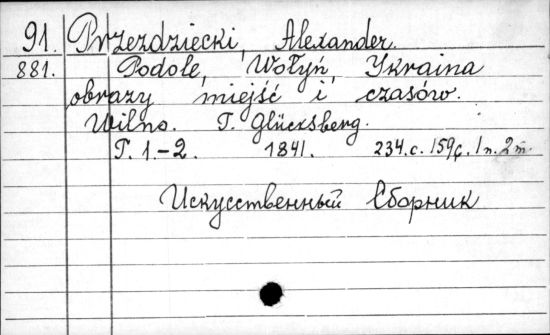 91. Przezdziecki, Alexander.
881. Podole, Wołyń, Ykraina
obrazy miejść i czasów.
Wilno. T. Glücksberg.
T. 1.-2. 1841. 234.c. 159c. 1n. 2m.
Искусственный Сборник